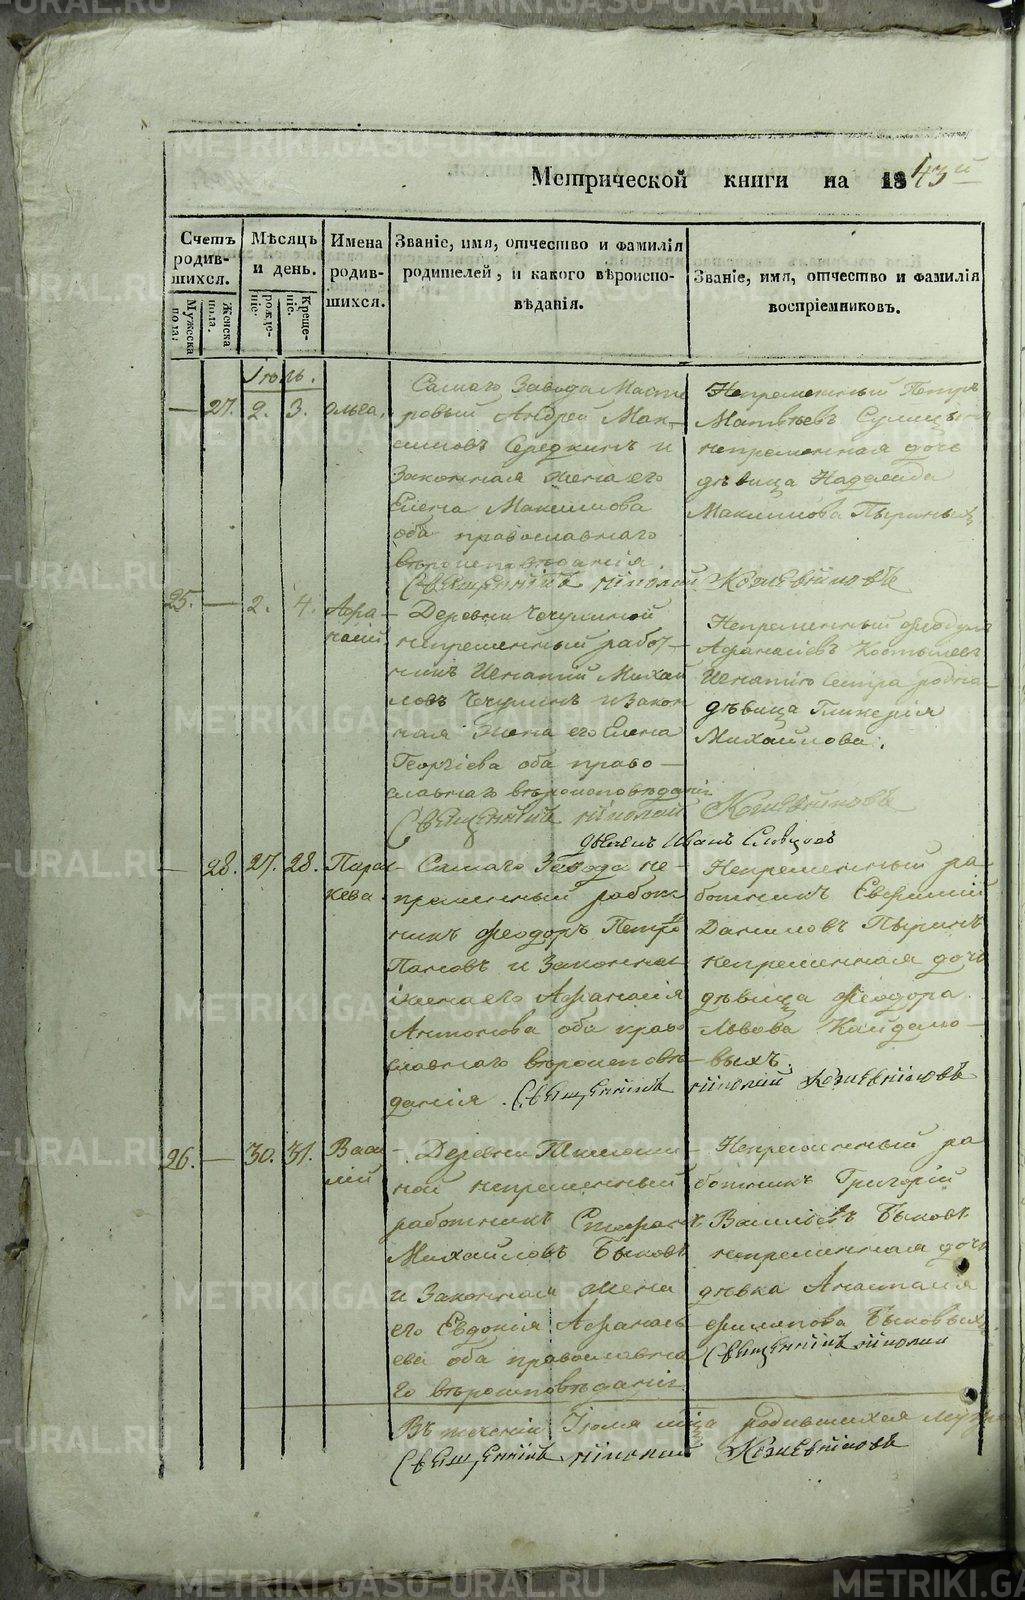 Метрической книги на 1843й
Счетъ родив-шихся.
Мужеска пола:
Женска пола.
Мѣсяцъ и день.
рожде-ніе.
Креще-ніе.
Имена родив-шихся.
Званіе, имя, отчество и фамилія
родителей, и какого вѣроиспо-
вѣданія.
Званіе, имя, отчество и фамилія
воспріемниковъ.
Іюль.
— 27. 2. 3. Ольга.
Самаго Завода Масте
ровый Андрей Мак-
симовъ Середкинъ и
Законная жена его
Елена Максимова
оба православнаго
вѣроисповѣданія.
Непременный Петръ
Матвѣевъ
непременная дочь
дѣвица Надежда
Максимова Пыриныхъ
Священникъ Николай Кожевниковъ
25. — 2. 4. Афа-
насій
Деревни Чечулиной
непременный работ-
никъ Игнатій Михаи
ловъ Чечулинъ и закон
ная жена его Елена
Георгіева оба право-
славнаго вѣроисповѣданія
Непременный Феодулъ
Афанасіевъ Костылевъ
Игнатію сестра родна-
дѣвица Гликерія
Михайлова.
Священникъ Николай Кожевниковъ
Иванъ Словцовъ
— 28. 27. 28. Парас
кева.
Самаго Завода не-
пременный работ
никъ Феодоръ Петро
Пановъ и Законная
жена его Афанасія
Антонова оба право
славнаго вѣроисповѣ-
данія.
Непременный ра-
ботникъ Евфимій
Даниловъ Пыринъ
непременная дочь
дѣвица Феодора
Львова Кайдало-
выхъ.
Священникъ Николай Кожевниковъ
26. — 30. 31. Васи
лій
Деревни
ной непременный
работникъ Стефанъ
Михайловъ Быковъ
и Законная жена
его Евдокія Афанась
ева оба православна
го вѣроисповѣданія
Непременный ра
ботникъ Григорій
Василіевъ Быковъ
непременная дочь
дѣвка Анастасія
Филипова Быковыхъ.
Священникъ Николай
Въ теченіи Іюля мѣца родившихся муж
Священникъ Николай Кожевниковъ
METRIKI.GASO-URAL.RU